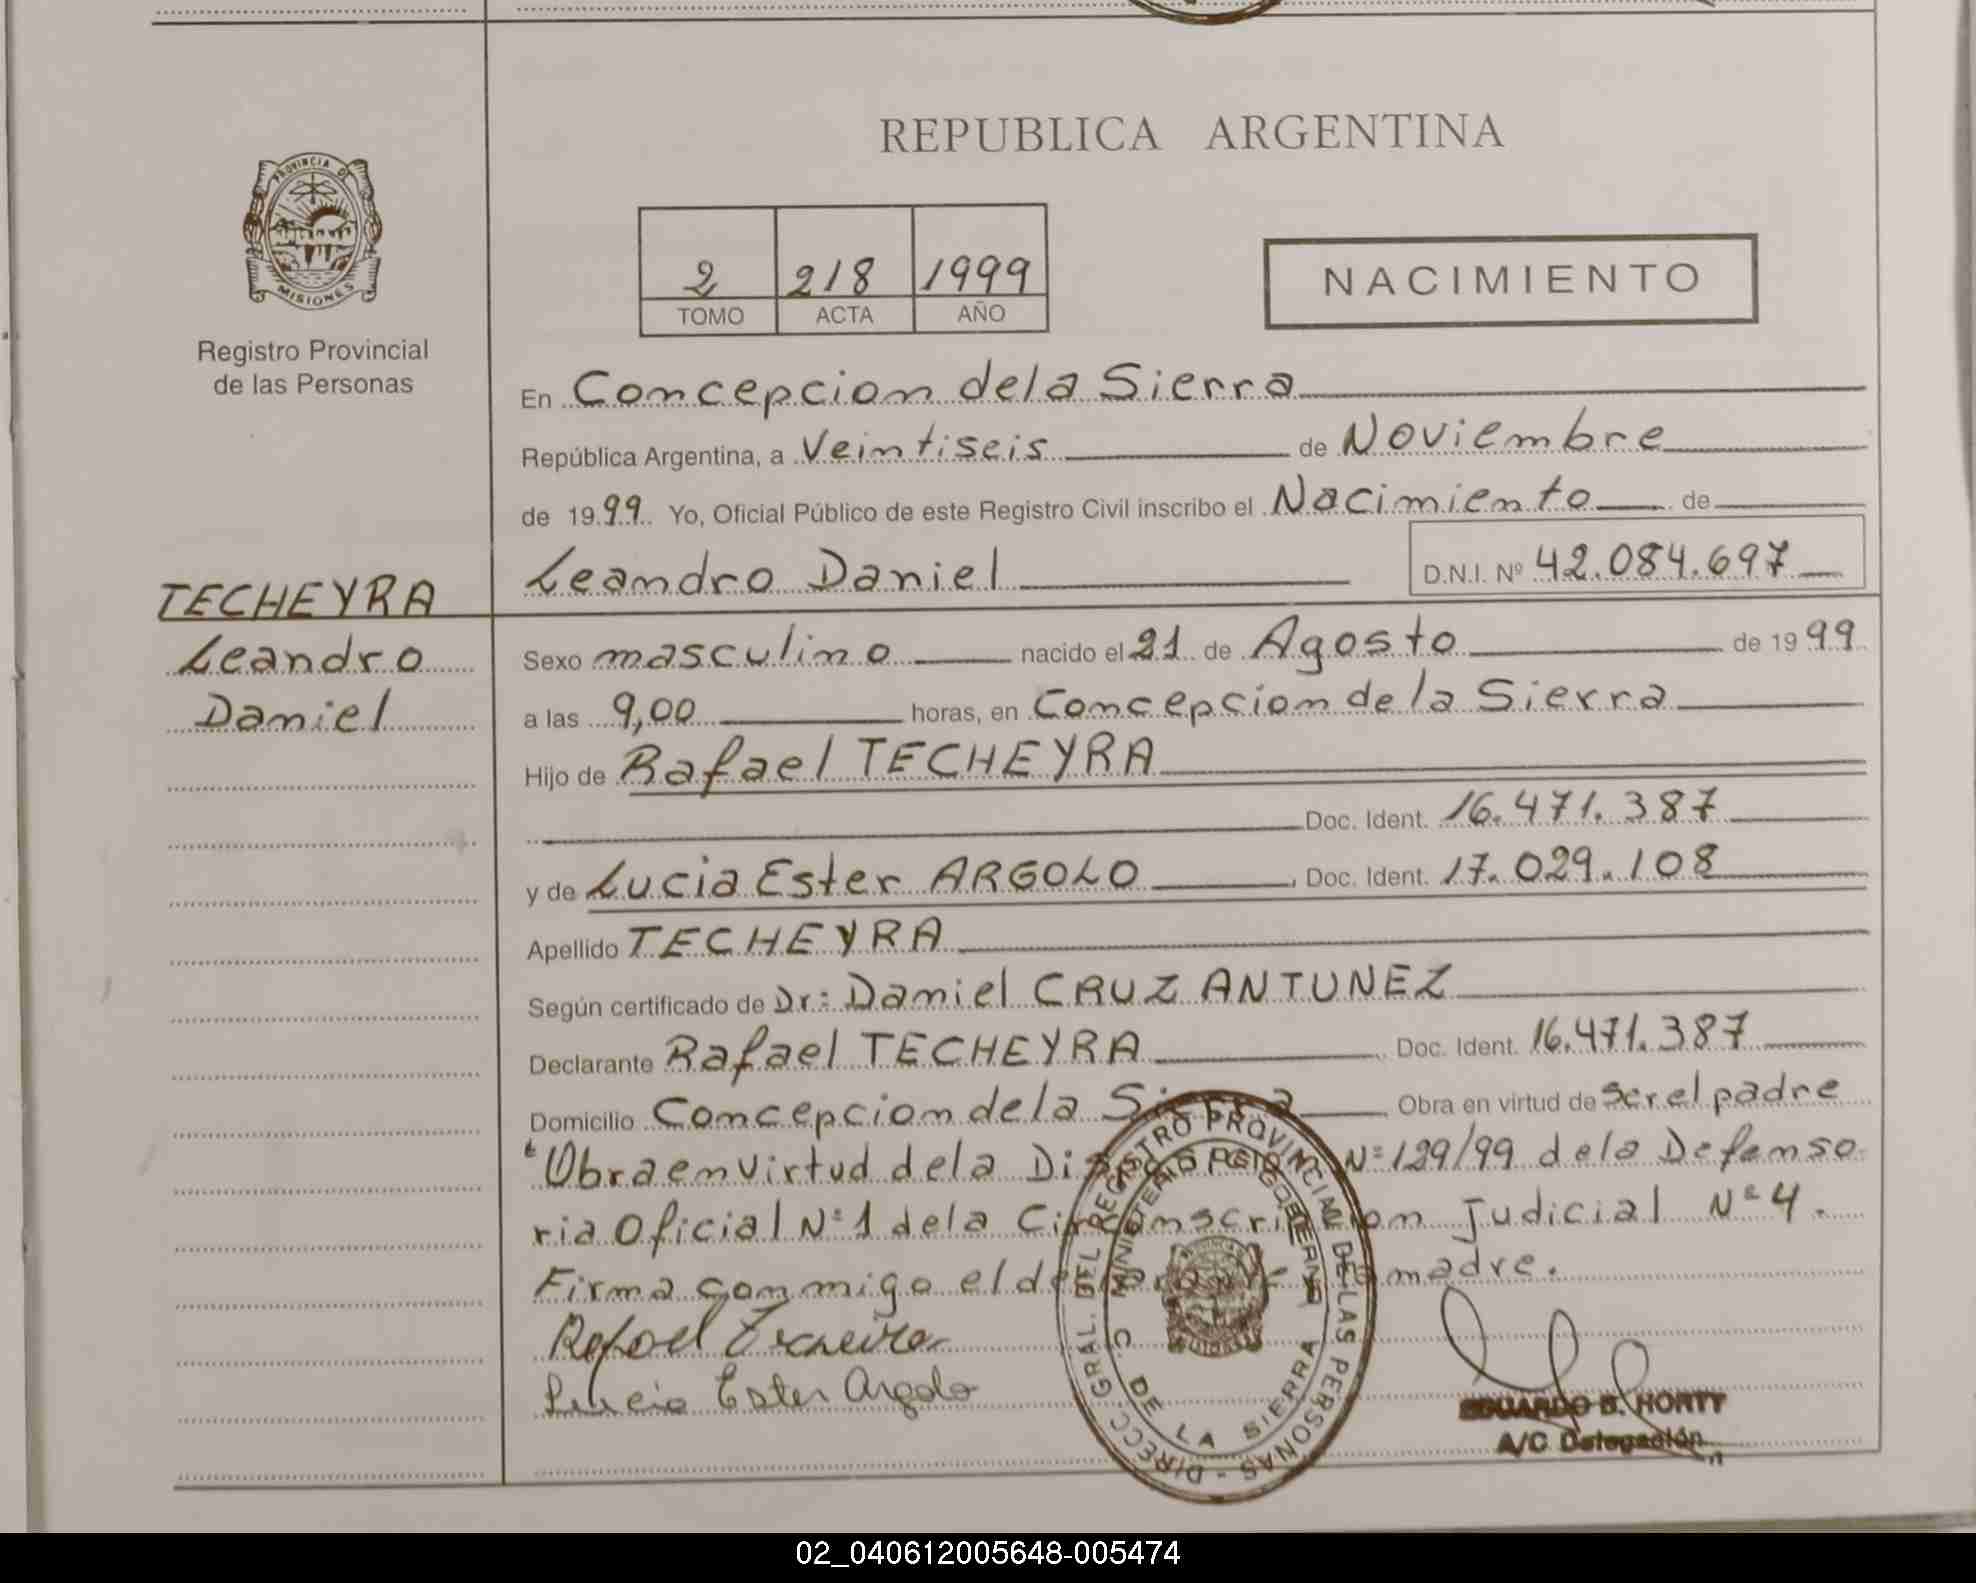 REPUBLICA ARGENTINA
PROVINCIA DE
MISIONES
Registro Provincial
de las Personas
2 218 1999
TOMO ACTA AÑO
NACIMIENTO
En Concepcion de la Sierra
República Argentina, a Veintiseis de Noviembre
de 1999 Yo, Oficial Público de este Registro Civil inscribo el Nacimiento de
Leandro Daniel D.N.I. Nº 42.084.697
TECHEYRA
Leandro
Daniel
Sexo masculino nacido el 21 de Agosto de 1999
a las 9,00 horas, en Concepcion de la Sierra
Hijo de Rafael TECHEYRA
Doc. Ident. 16.471.387
y de Lucia Ester ARGOLO, Doc. Ident. 17.029.108
Apellido TECHEYRA
Según certificado de Dr: Daniel CRUZ ANTUNEZ
Declarante Rafael TECHEYRA Doc. Ident. 16.471.387
Domicilio Concepcion de la Sierra Obra en virtud de Ser el padre
Obra en Virtud de la Nº 129/99 de la Defenso
ria Oficial Nº 1 de la Circunscripcion Judicial Nº 4.
Firma conmigo el madre.
Rafael Techeira
Lucia Ester Argolo
DIRECC. GRAL. DEL REGISTRO PROVINCIAL DE LAS PERSONAS -
MINISTERIO DE GOBIERNO
C. DE LA SIERRA
EDUARDO B. HORTY
A/C Delegación
02_040612005648-005474